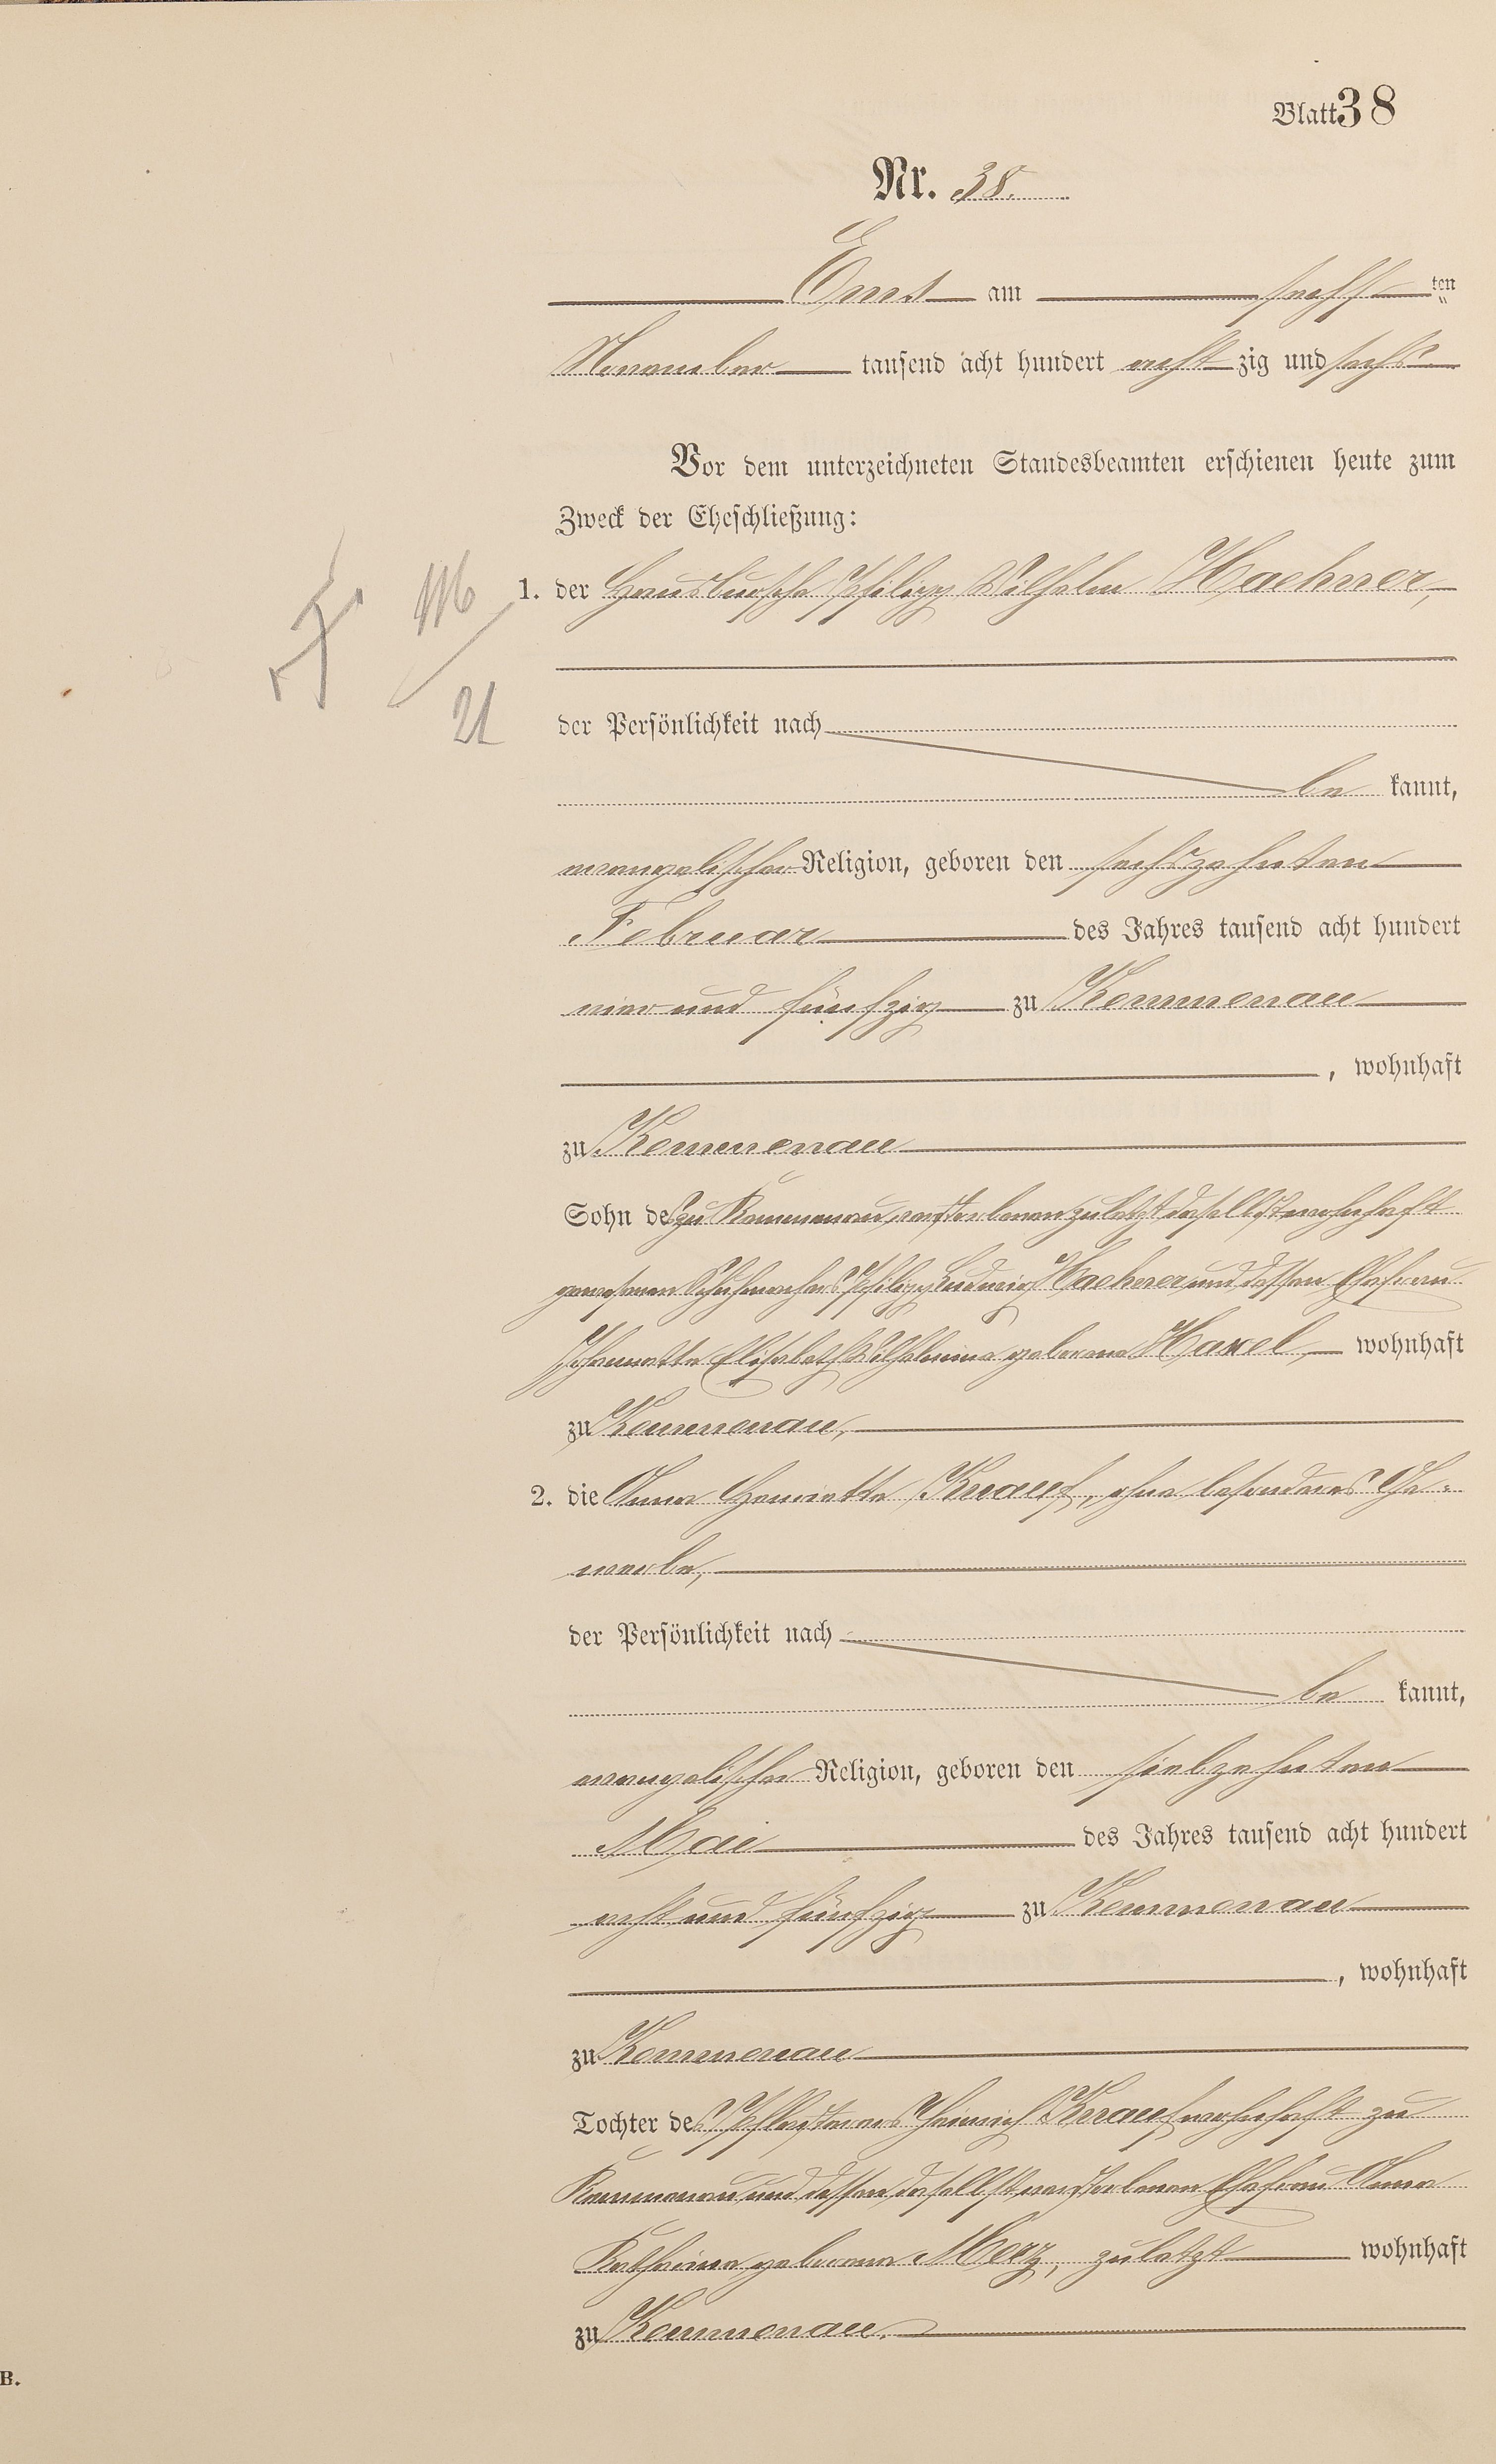 Blatt 38
Nr. 38.
Ems am sechsten
November tausend acht hundert achtzig und sechs
Vor dem unterzeichneten Standesbeamten erschienen heute zum
Zweck der Eheschließung:
1. der Hausbursche Philipp Wilhelm Haehner,
116
21
der Persönlichkeit nach
bekannt,
evangelischer Religion, geboren den sechszehnten
Februar des Jahres tausend acht hundert
vier und fünfzig zu Kemmenau
, wohnhaft
zu Kemmenau
Sohn des zu Kemmenau verstorbenen zuletzt daselbst wohnhaft
gewesenen Schuhmachers Philipp Ludwig Haehner und dessen Ehefrau
Johannette Elisabeth Wilhelmine geborene Haxel, wohnhaft
zu Kemmenau,
2. die Anna Henriette Knauf, ohne besonderes Ge-
werbe,
der Persönlichkeit nach
bekannt,
evangelischer Religion, geboren den siebzehnten
Mai des Jahres tausend acht hundert
acht und fünfzig zu Kemmenau
, wohnhaft
zu Kemmenau
Tochter des Pflasterers Heinrich Knauf wohnhaft zu
Kemmenau und dessen daselbst verstorbenen Ehefrau Anna
Katharina geborene Merz, zuletzt wohnhaft
zu Kemmenau.
B.